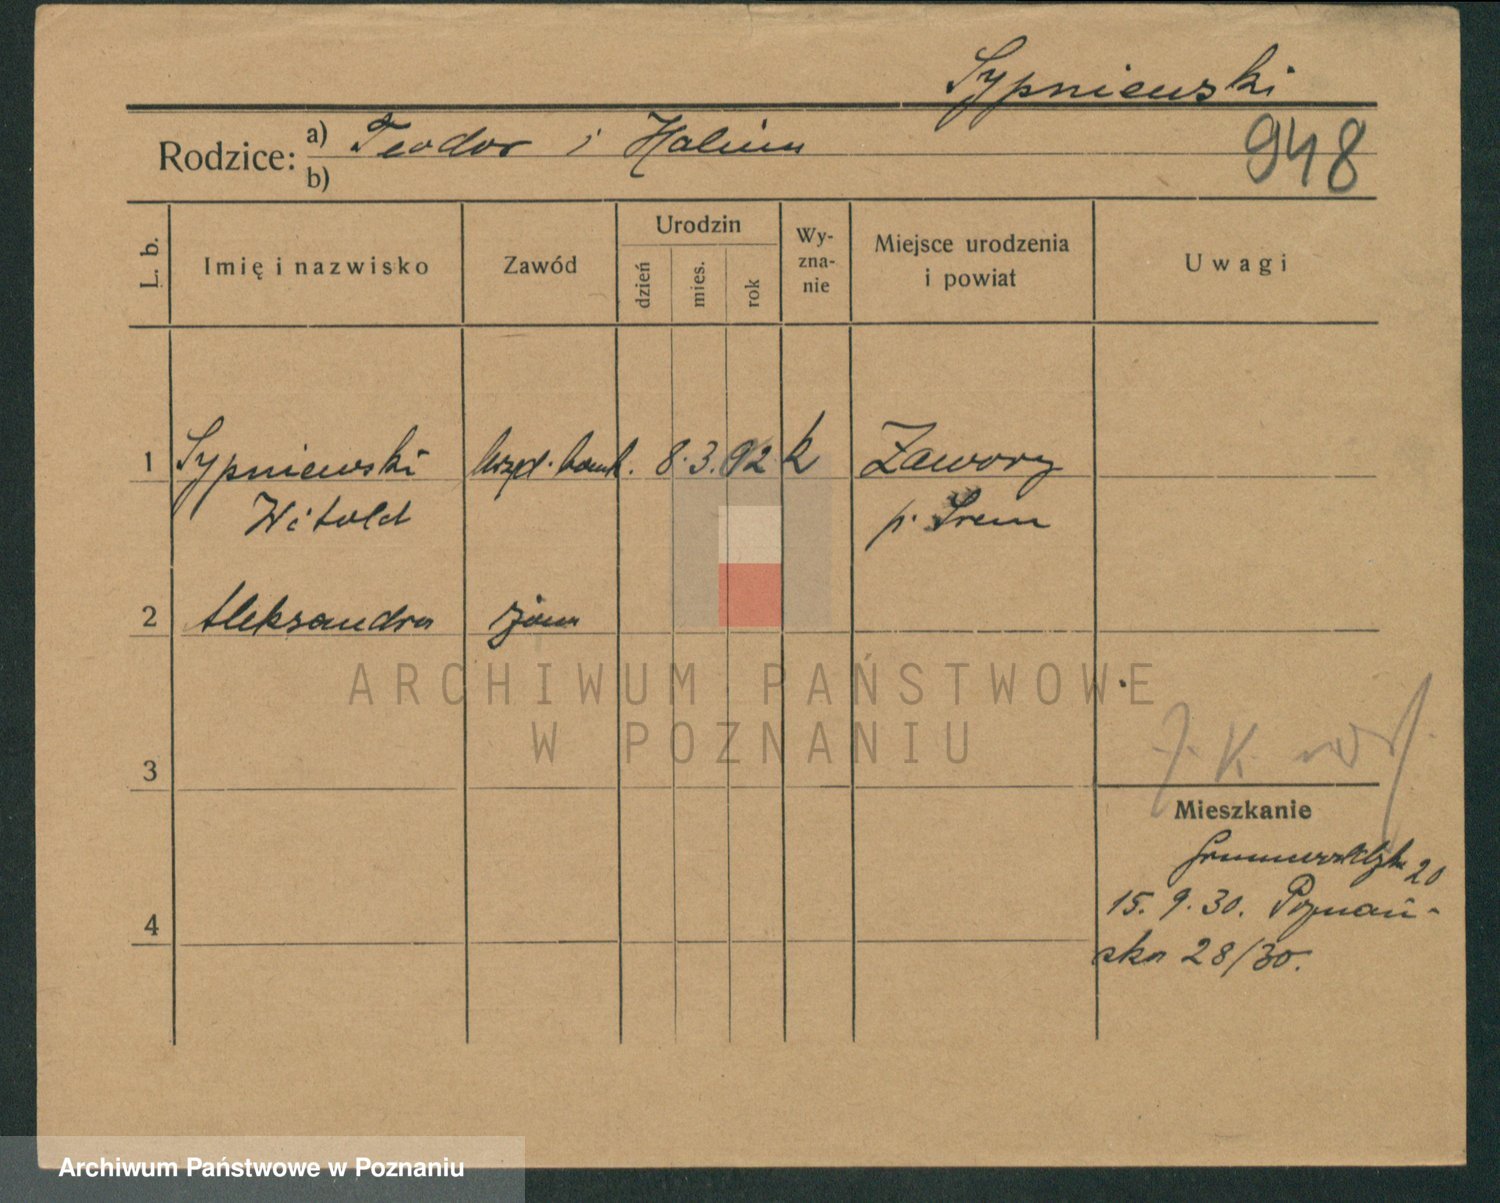 Sypniewski
Rodzice: a) Teodor i Halina
b)
948
L. b.
Imię i nazwisko
Zawód
Urodzin
dzień
mies.
rok
Wy-
zna-
nie
Miejsce urodzenia
i powiat
Uwagi
1 Sypniewski Urzęd. bank. 8. 3. 92 k Zawory
Witold p. Śrem
2 Aleksandra żona
ARCHIWUM PAŃSTWOWE
W POZNANIU
3
J. K.
Mieszkanie
20
15. 9. 30. Poznań-
ska 28/30.
4
Archiwum Państwowe w Poznaniu